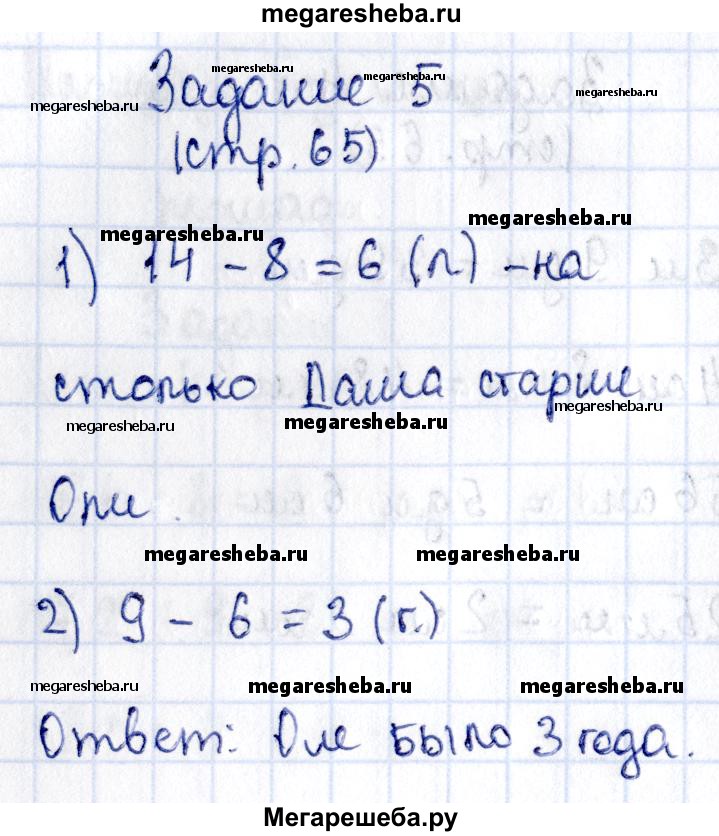 megaresheba.ru
Задание 5
megaresheba.ru
megaresheba.ru
megaresheba.ru
megaresheba.ru
(стр. 65)
megaresheba.ru
megaresheba.ru
1) 14 - 8 = 6 (л.) - на
столько Даша старше
megaresheba.ru
megaresheba.ru
megaresheba.ru
Оли.
megaresheba.ru
megaresheba.ru
2) 9 - 6 = 3 (г.)
megaresheba.ru
megaresheba.ru
megaresheba.ru
Ответ: Оле было 3 года.
Мегарешеба.ру